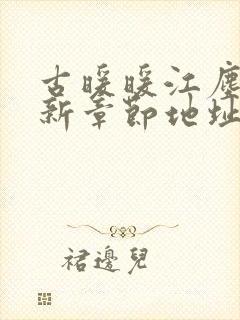 古暖暖江塵
新章節地址
裙邊兒